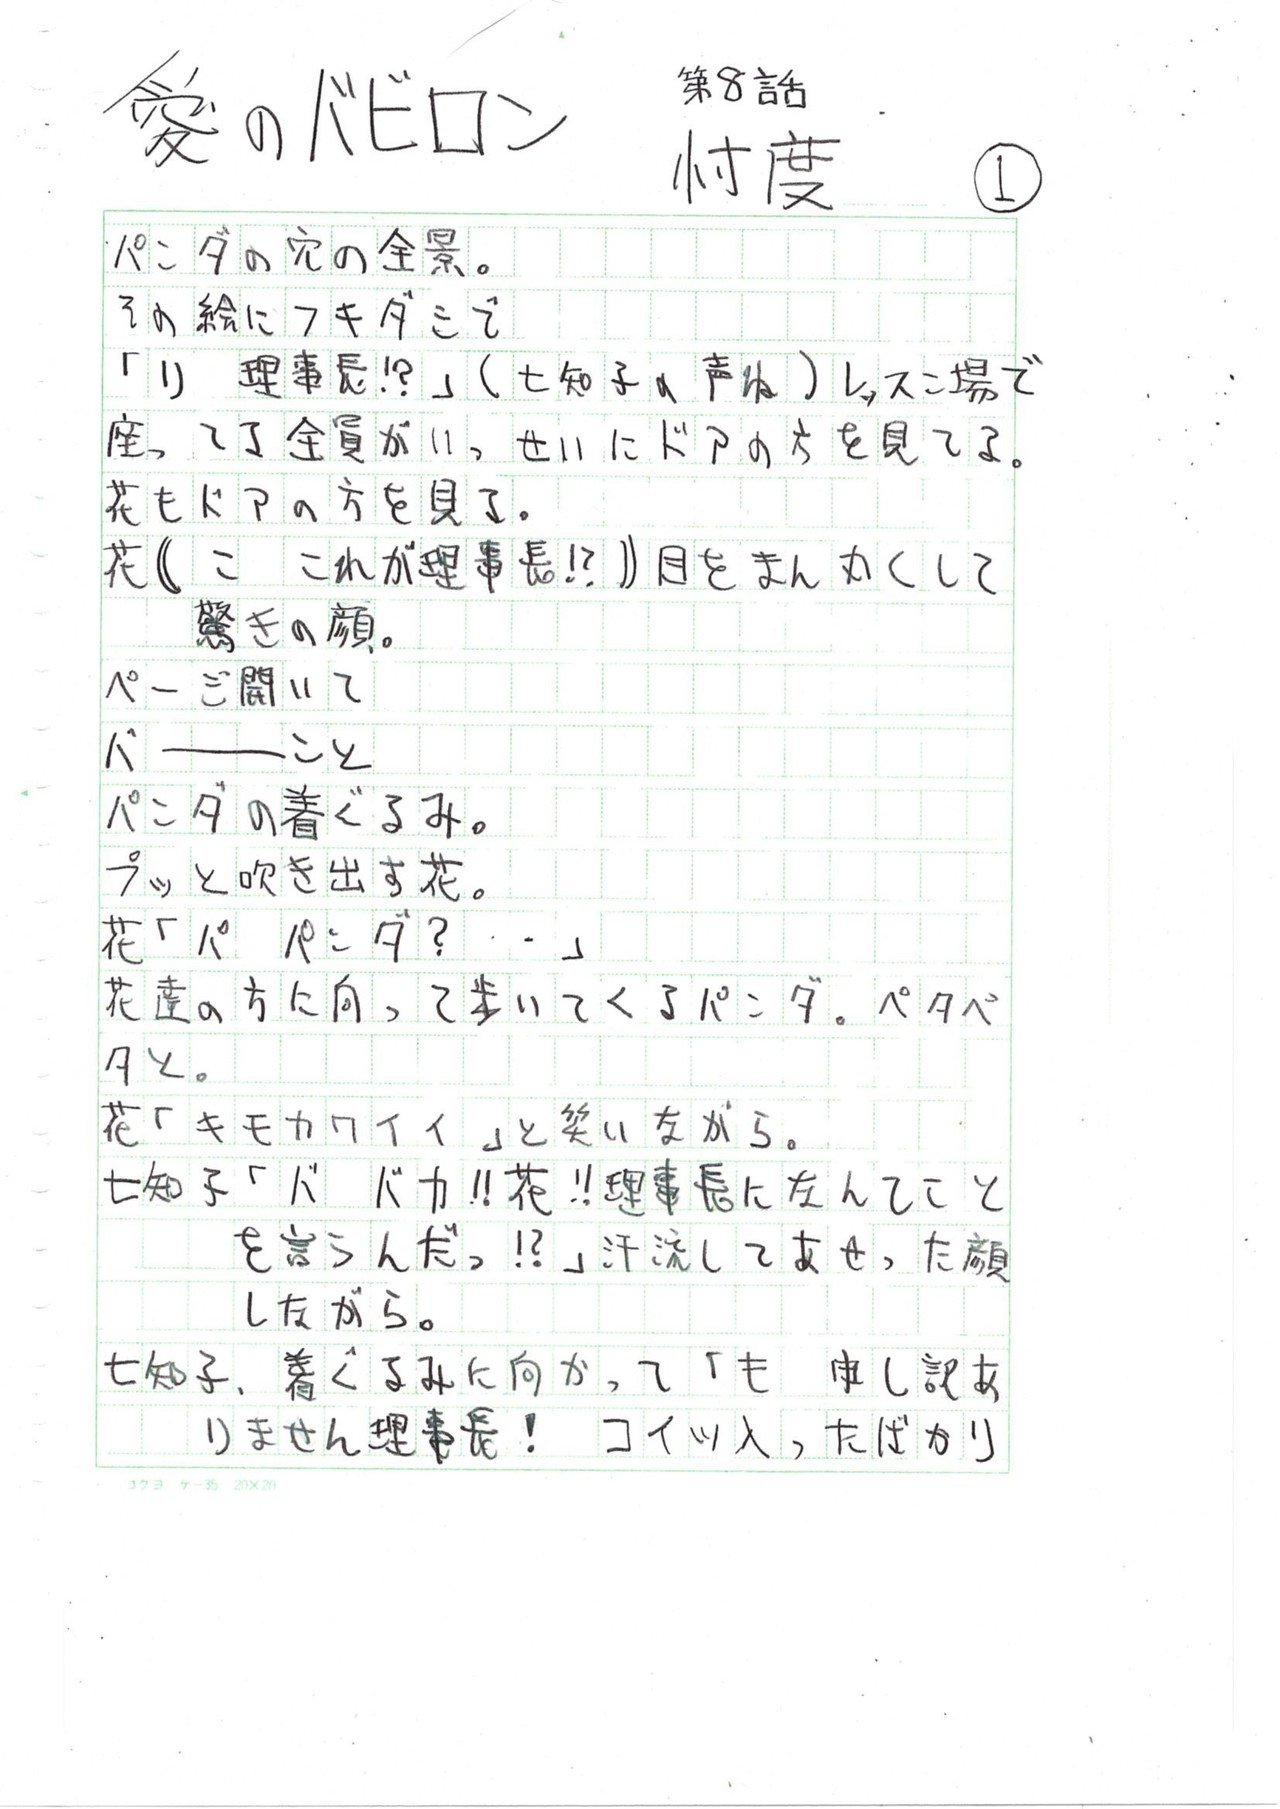 愛のバビロン
第8話
忖度
①
パンダの穴の全景。
その絵にフキダシで
「り　理事長!?」(七知子の声ね)レッスン場で
座ってる全員がいっせいにドアの方を見てる。
花もドアの方を見る。
花《こ　これが理事長!?》目をまん丸くして
驚きの顔。
ページ開いて
バ―――ンと
パンダの着ぐるみ。
プッと吹き出す花。
花「パ　パンダ?‥」
花達の方に向って歩いてくるパンダ。ペタペ
タと。
花「キモカワイイ」と笑いながら。
七知子「バ　バカ!!花!!理事長になんてこと
を言うんだっ!?」汗流してあせった顔
しながら。
七知子、着ぐるみに向かって「も　申し訳あ
りません理事長!　コイツ入ったばかり
コクヨ　ケ-35　20×20